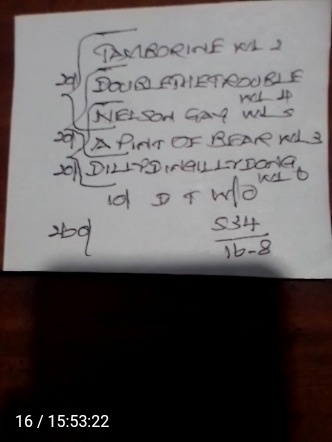 TAMBORINE WL 2
20/ DOUBLETHETROUBLE
WL 4
NELSON GAY WL 5
20/ A PINT OF BEAR WL 3
20/ DILLYDINGILLYDONG
WL 6
10/ D T W/O
260/
534
16-8
16 / 15:53:22